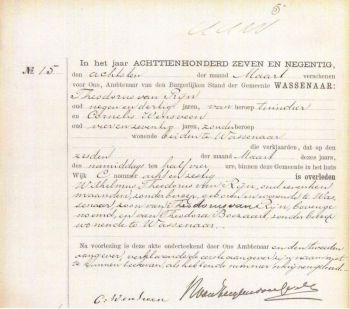 5
№ 15
In het jaar ACHTTIENHONDERD ZEVEN EN NEGENTIG,
den achtsten der maand Maart verschenen
voor Ons, Ambtenaar van den Burgerlijken Stand der Gemeente WASSENAAR:
Theodorus van Rijn
oud negen en dertig jaren, van beroep tuinder
en Cornelis Wensveen
oud vier en zeventig jaren, zonder beroep
wonende beiden te Wassenaar
die verklaarden, dat op den
zesden der maand Maart dezes jaars,
des namiddags ten half vier ure, binnen deze Gemeente in het huis
Wijk C nommer acht en zestig is overleden
Wilhelmus Theodorus van Rijn, oud zeventien
maanden, zonder beroep, geboren en wonende te Was
senaar, zoon van Theodorus van Rijn, bovenge
noemd, en van Theodora Boxaart, zonder beroep
wonende te Wassenaar.
Na voorlezing is deze akte onderteekend door Ons Ambtenaar en den tweeden
aangever, verklaarde de eerste aangever zijn naam niet
te kunnen teekenen, als hebbende nimmer schrijven geleerd.
C. Wensveen